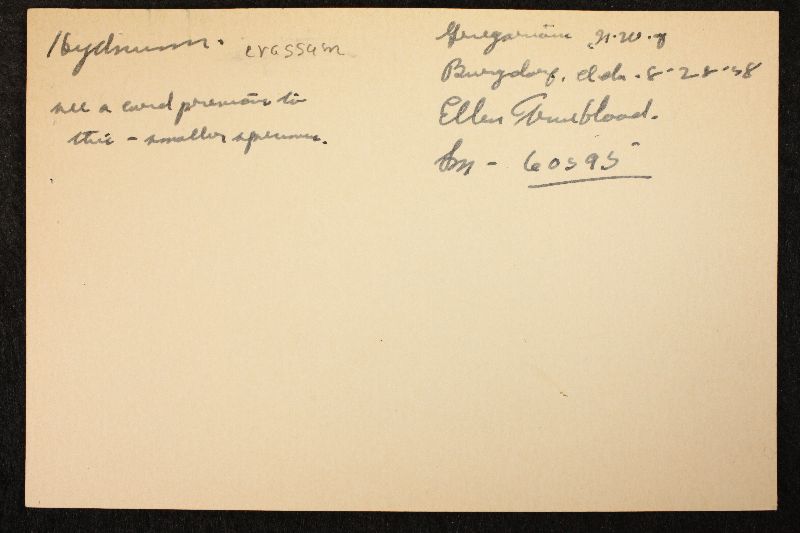 Hydnum. crassum
see a card previous to
this - smaller specimen.
Gregarious, N.W. of
Burgdorf, Ida. 8-28-58
Ellen Trueblood.
Sm - 60595